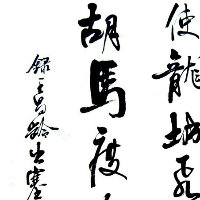 使龍城飛
胡馬度
錄王昌齡出塞